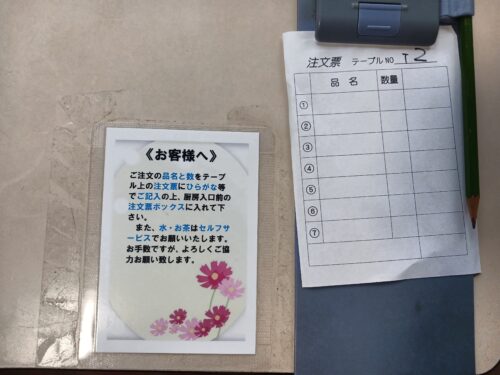 《お客様へ》
ご注文の品名と数をテーブ
ル上の注文票にひらがな等
でご記入の上、厨房入口前の
注文票ボックスに入れて下
さい。
また、水・お茶はセルフサ
ービスでお願いいたします。
お手数ですが、よろしくご協
力お願い致します。
注文票 テーブルNO T2
品名 数量
①
②
③
④
⑤
⑥
⑦